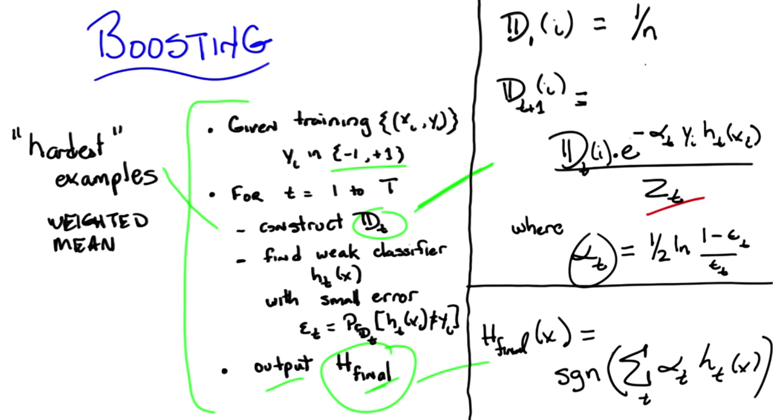 BOOSTING
"hardest"
examples
WEIGHTED
MEAN
• Given training {(xᵢ, yᵢ)}
yᵢ in {-1, +1}
• For t = 1 to T
- construct 𝔻ₜ
- find weak classifier
hₜ(x)
with small error
εₜ = P_𝔻ₜ [hₜ(xᵢ) ≠ yᵢ]
• output H_final
𝔻₁(i) = 1/n
𝔻ₜ₊₁(i) =
𝔻ₜ(i) · e^(-αₜ yᵢ hₜ(xᵢ))
Zₜ
where
αₜ = 1/2 ln (1-εₜ)/εₜ
H_final(x) =
sgn(∑ₜ αₜ hₜ(x))